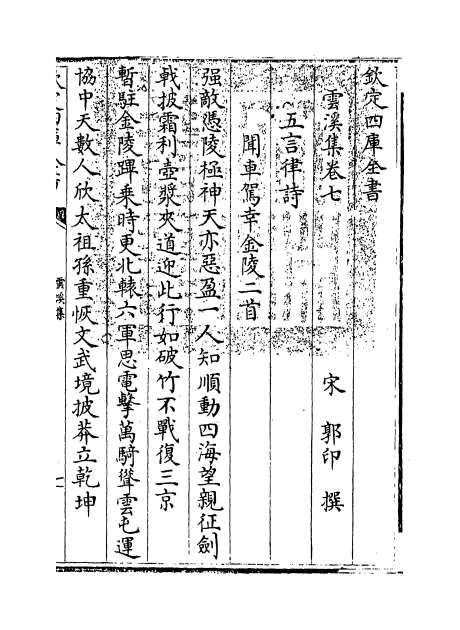 欽定四庫全書
雲溪集卷七
宋 郭印 撰
五言律詩
聞車駕幸金陵二首
强敵憑陵極神天亦惡盈一人知順動四海望親征劍
戟披霜利壺漿夾道迎此行如破竹不戰復三京
暫駐金陵蹕乗時更北轅六軍思電擊萬騎聳雲屯運
協中天數人欣太祖孫重恢文武境披莽立乾坤
雲溪集
一